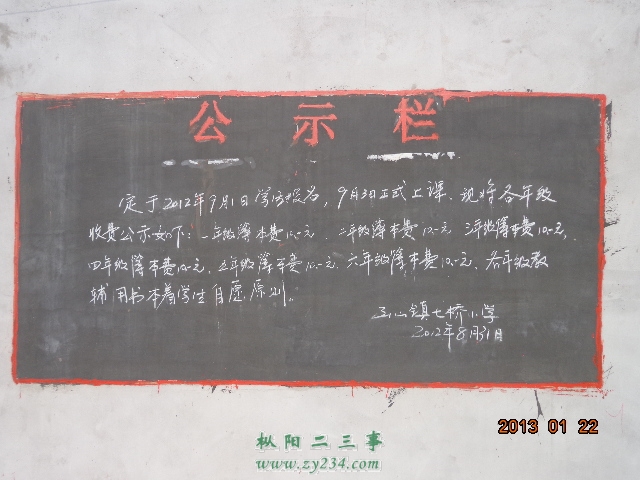 公示栏
定于2012年9月1日学生报名，9月3日正式上课。现将各年级
收费公示如下：一年级簿本费10元、二年级簿本费10元、三年级簿本费10元、
四年级簿本费10元、五年级簿本费10元、六年级簿本费10元、各年级教
辅用书本着学生自愿原则。
山镇七桥小学
2012年8月31日
2013 01 22
枞阳二三事
www.zy234.com